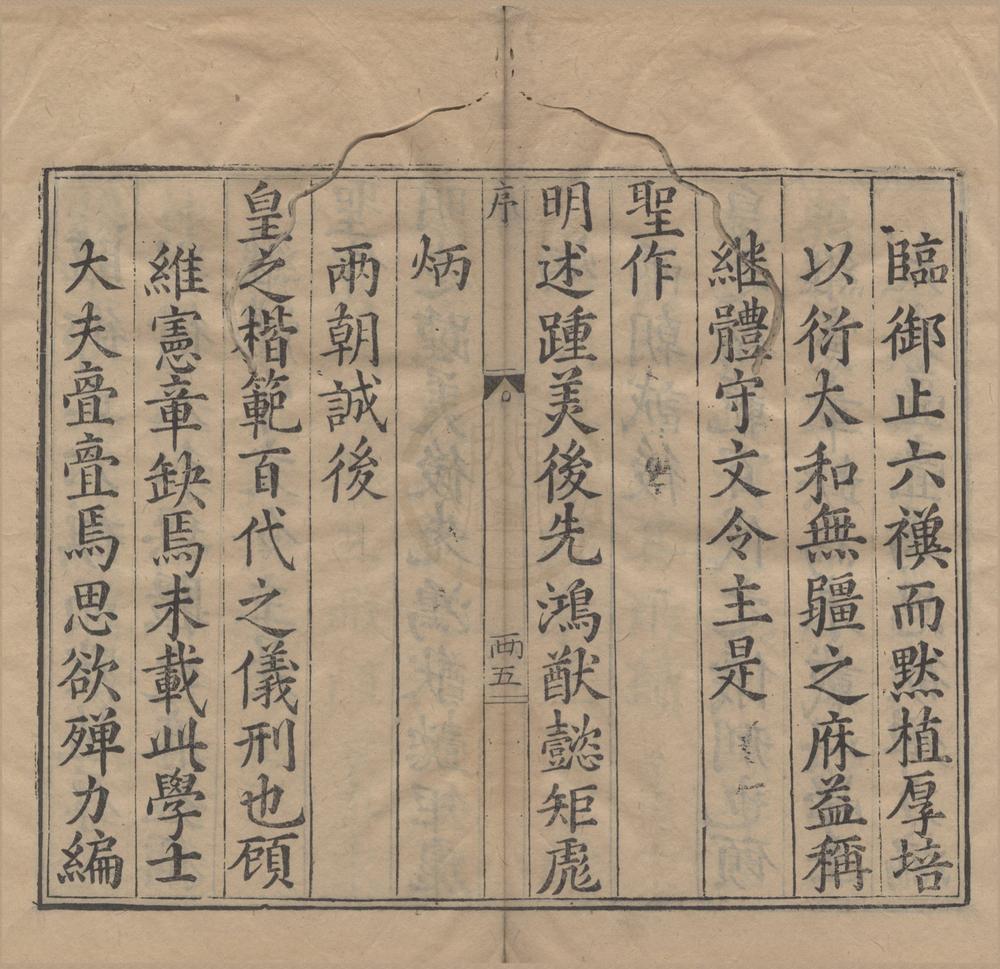 臨御止六禩而默植厚培
以衍太和無疆之庥益稱
継體守文令主是
聖作
明述踵美後先鴻猷懿矩彪
序
両五
炳
兩朝誠後
皇之楷範百代之儀刑也顧
維憲章缺焉未載此學士
大夫亹亹焉思欲殫力編